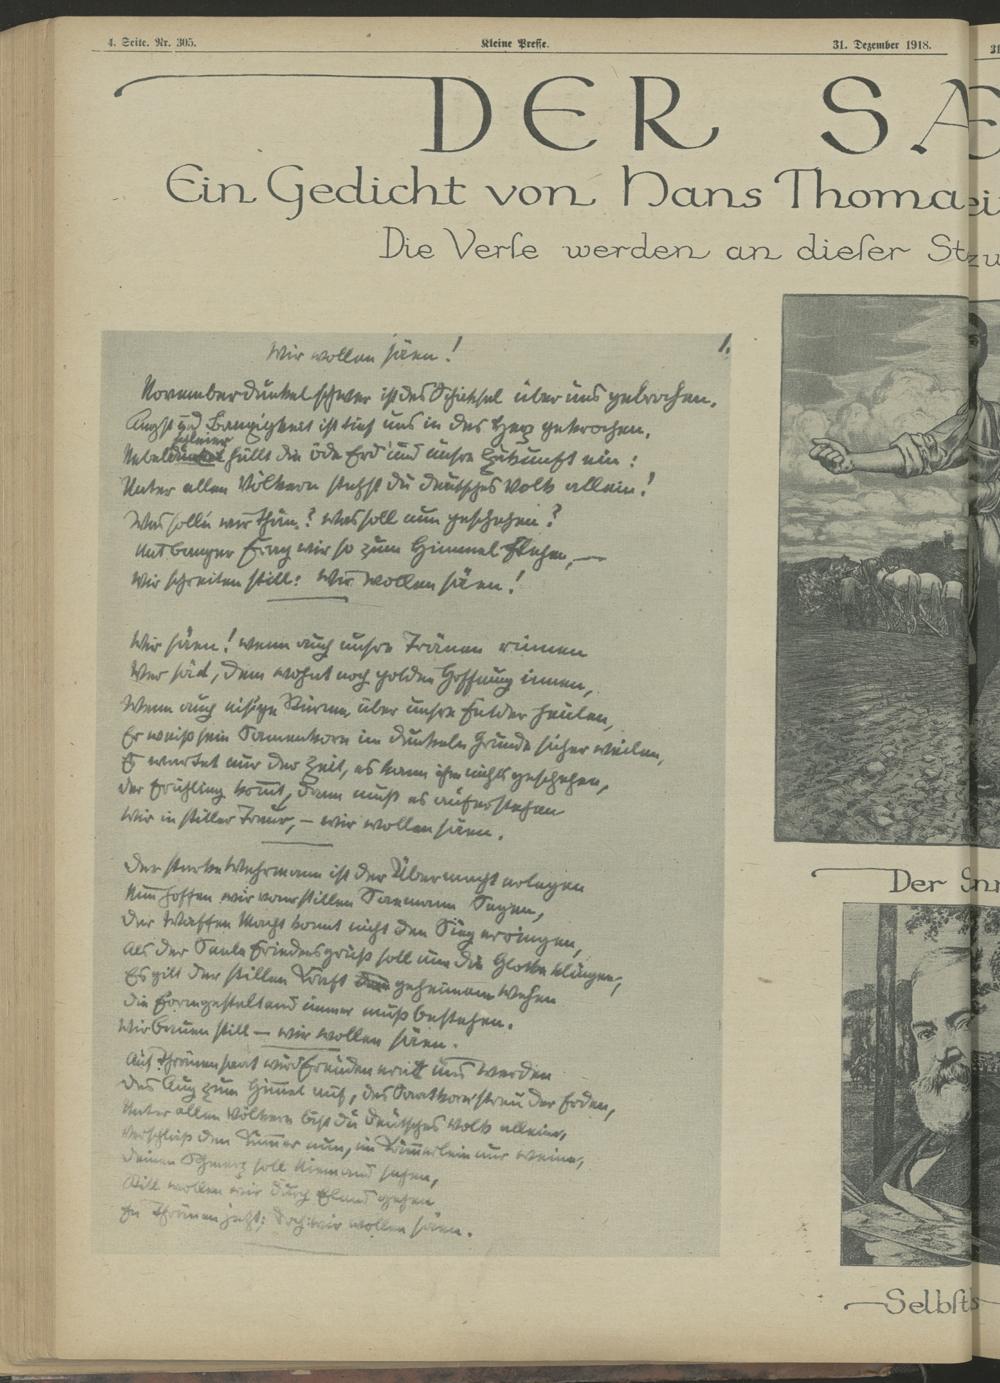 4. Seite. Nr. 305.
Kleine Presse.
31. Dezember 1918.
31
DER SÆ
Ein Gedicht von Hans Thoma ei
Die Verse werden an dieser St zu
1.
Wir wollen säen!
Novemberdunkel schwer ist das Schicksal über uns gebrochen.
Angst und Bangigkeit ist tief uns in das Herz gekrochen.
schleier
Nebel hüllt die öde Erd' und unsre Zukunft ein:
Unter allen Völkern stehst du deutsches Volk allein!
Was soll'n wir thun? was soll nun geschehen?
Mit banger Frag wir so zum Himmel flehen, —
Wir schreiten still: Wir wollen säen!
Wir säen! wenn auch unsre Tränen rinnen
Wer säet, dem wohnt noch goldne Hoffnung innen,
Wenn auch eisige Stürme, über unsre Felder heulen,
Er weiß sein Samenkorn im dunkeln Grunde sicher weilen,
Es wartet nur der Zeit, es kann ihm nichts geschehen,
Der Frühling kommt, dann muß es auferstehen
Wir in stiller Trauer, – wir wollen säen.
Der starke Wehrmann ist der Übermacht erlegen
Nun hoffen wir vom stillen Sæmann Segen,
Der Waffen Macht konnt nicht den Sieg erringen,
Als der Seele Friedensgruß soll nun die Glocke klingen,
Es gilt der stillen Kraft geheimem Wehen
Die Formgestaltend immer muß bestehen.
Wir bauen still – wir wollen säen.
Aus Thränensaat wird Freudenernt uns werden
Das Aug zum Himmel auf, das Saatkorn streu der Erden,
Unter allen Völkern bist du deutsches Volk alleine,
Verschließ den Kummer nun, im Kämmerlein nur weine,
Deinen Schmerz soll Niemand sehen,
Still wollen wir durch Elend gehen
In Thränen jetzt; doch wir wollen säen.
Der Snn
Selbsts